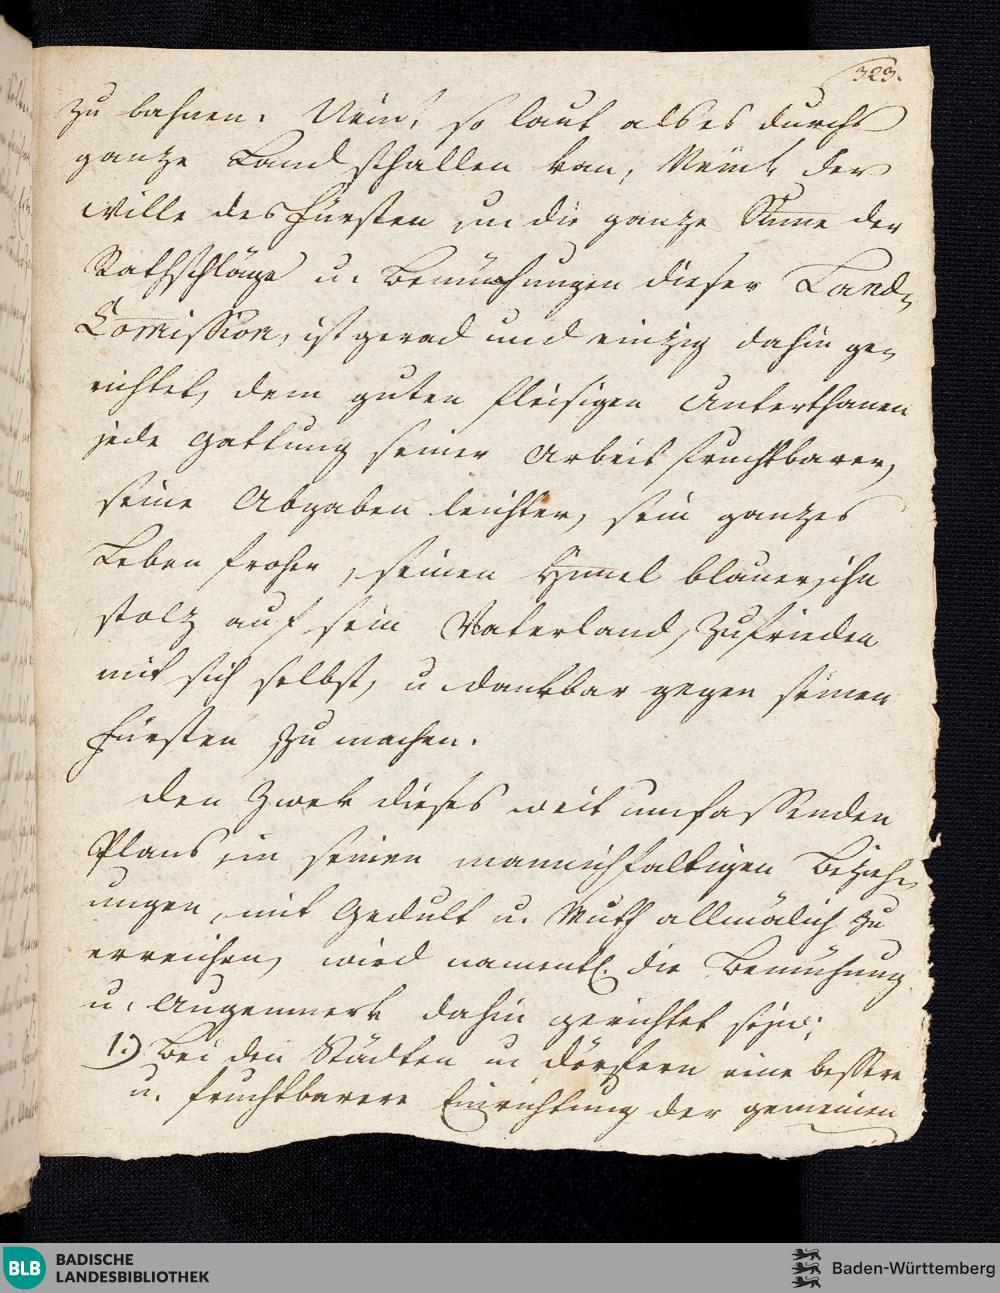 323.
zu bahnen. Nein, so laut als es durchs
ganze Land schallen kan, Nein der
Wille des Fürsten und die ganze Sume der
Rathschläge u. Bemühungen dieser Land-
Comission, ist gerad und einzig dahin ge-
richtet, dem guten fleisigen Unterthanen
jede Gattung seiner Arbeit fruchtbarer,
seine Abgaben leichter, sein ganzes
Leben froher, seinen Himel blauer, ihn
stolz auf sein Vaterland, zufrieden
mit sich selbst, u. dankbar gegen seinen
Fürsten zu machen.
Den Zwek dieses weit umfassenden
Plans in seinen mannichfaltigen Bezieh-
ungen, mit Gedult u. Muth allmälich zu
erreichen, wird namentl. die Bemühung
u. Augenmerk dahin gerichtet seyn;
1.) Bei den Städten u. Dörfern eine bessere
u. fruchtbarere Einrichtung der gemeinen
BLB BADISCHE
LANDESBIBLIOTHEK
Baden-Württemberg